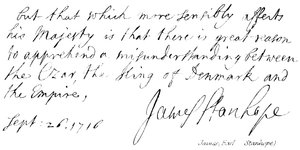 but that which more sensibly affects
his Majesty is that there is great reason
to apprehend a misunderstanding between
the Czar, the King of Denmark and
the Empire.
James Stanhope
Sept: 26. 1716
James, Earl Stanhope